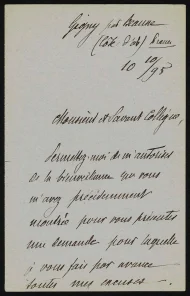 Gigny par Beaune
(Côte-d'Or)
10 10/95
Monsieur et Savant Collègue,
Permettez-moi de m'autoriser
de la bienveillance que vous
m'avez précédemment
montrée pour vous présenter
une demande pour laquelle
je vous fais par avance
toutes mes excuses -